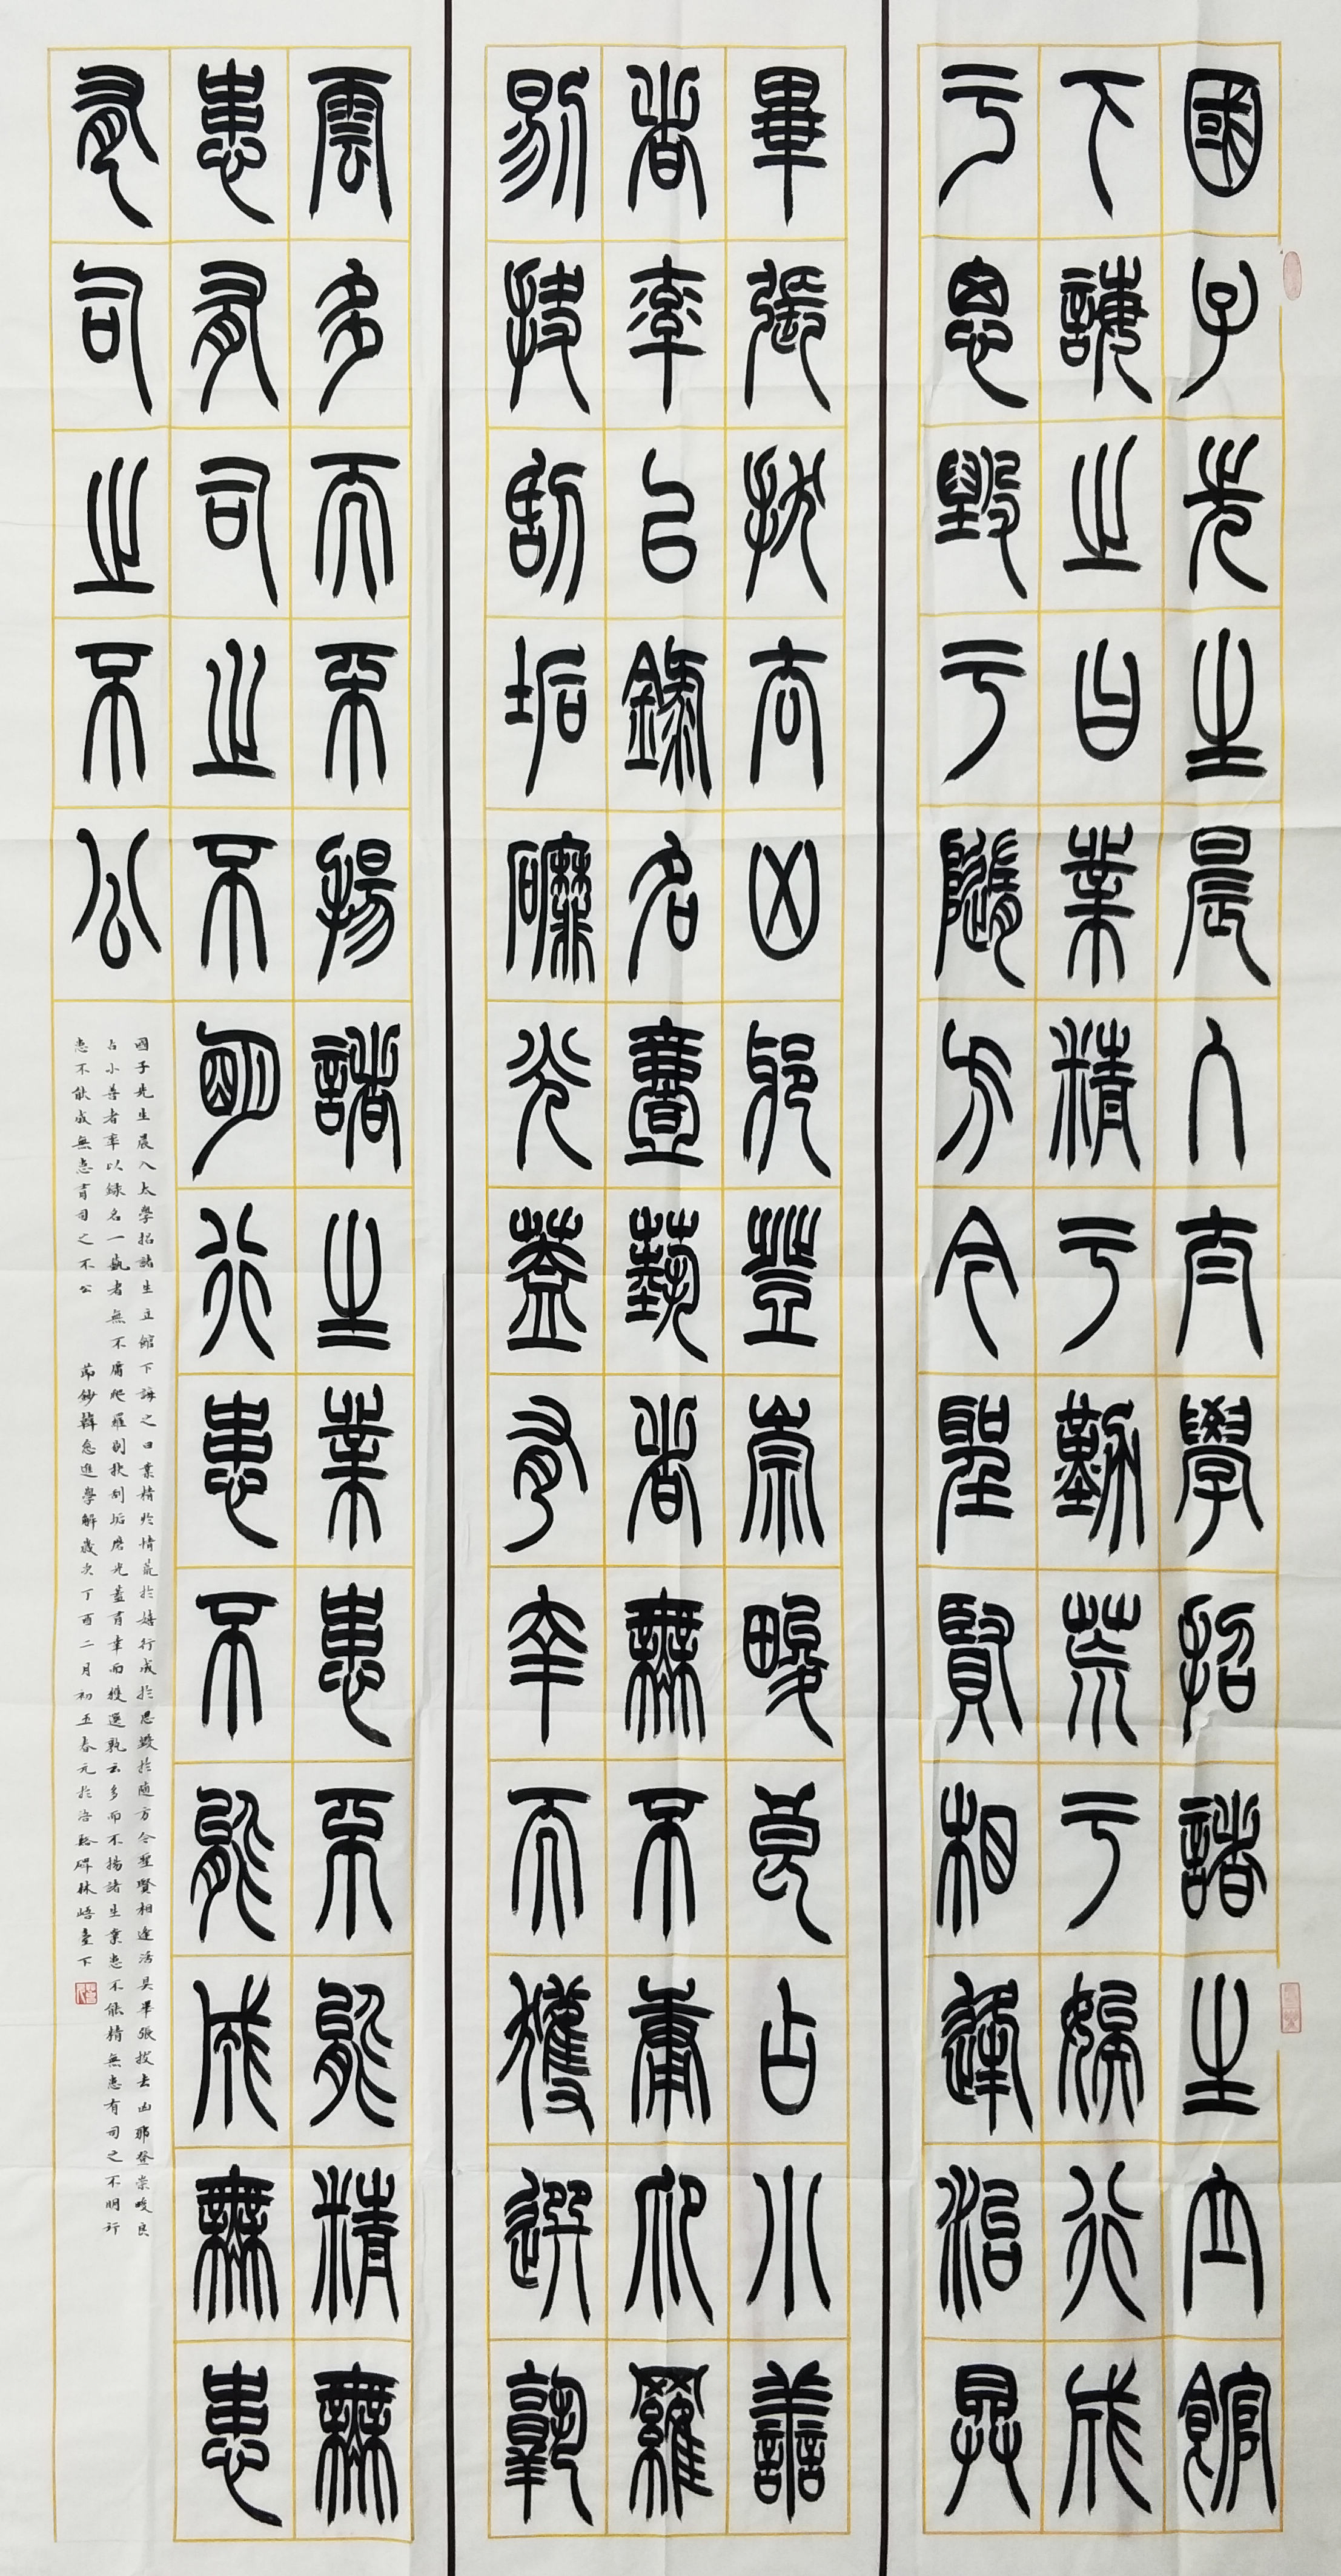 國子先生晨入太學招諸生立館
下誨之曰業精于勤荒于嬉行成
于思毀于隨方今聖賢相逢治具
畢張拔去凶邪登崇畯良占小善
者率以錄名一藝者無不庸爬羅
剔抉刮垢磨光蓋有幸而獲選孰
云多而不揚諸生業患不能精無
患有司之不明行患不能成無患
有司之不公
國子先生晨入太學招諸生立館下誨之曰業精於情荒於嬉行成於思毀於隨方今聖賢相逢活具畢張拔去凶邪登崇畯良
占小善者率以録名一藝者無不庸爬羅剔抉刮垢磨光蓋有幸而獲選孰云多而不揚諸生業患不能精無患有司之不明行
患不能成無患有司之不公 節鈔韓愈進學解歲次丁酉二月初五春元於浯谿碑林峿臺下